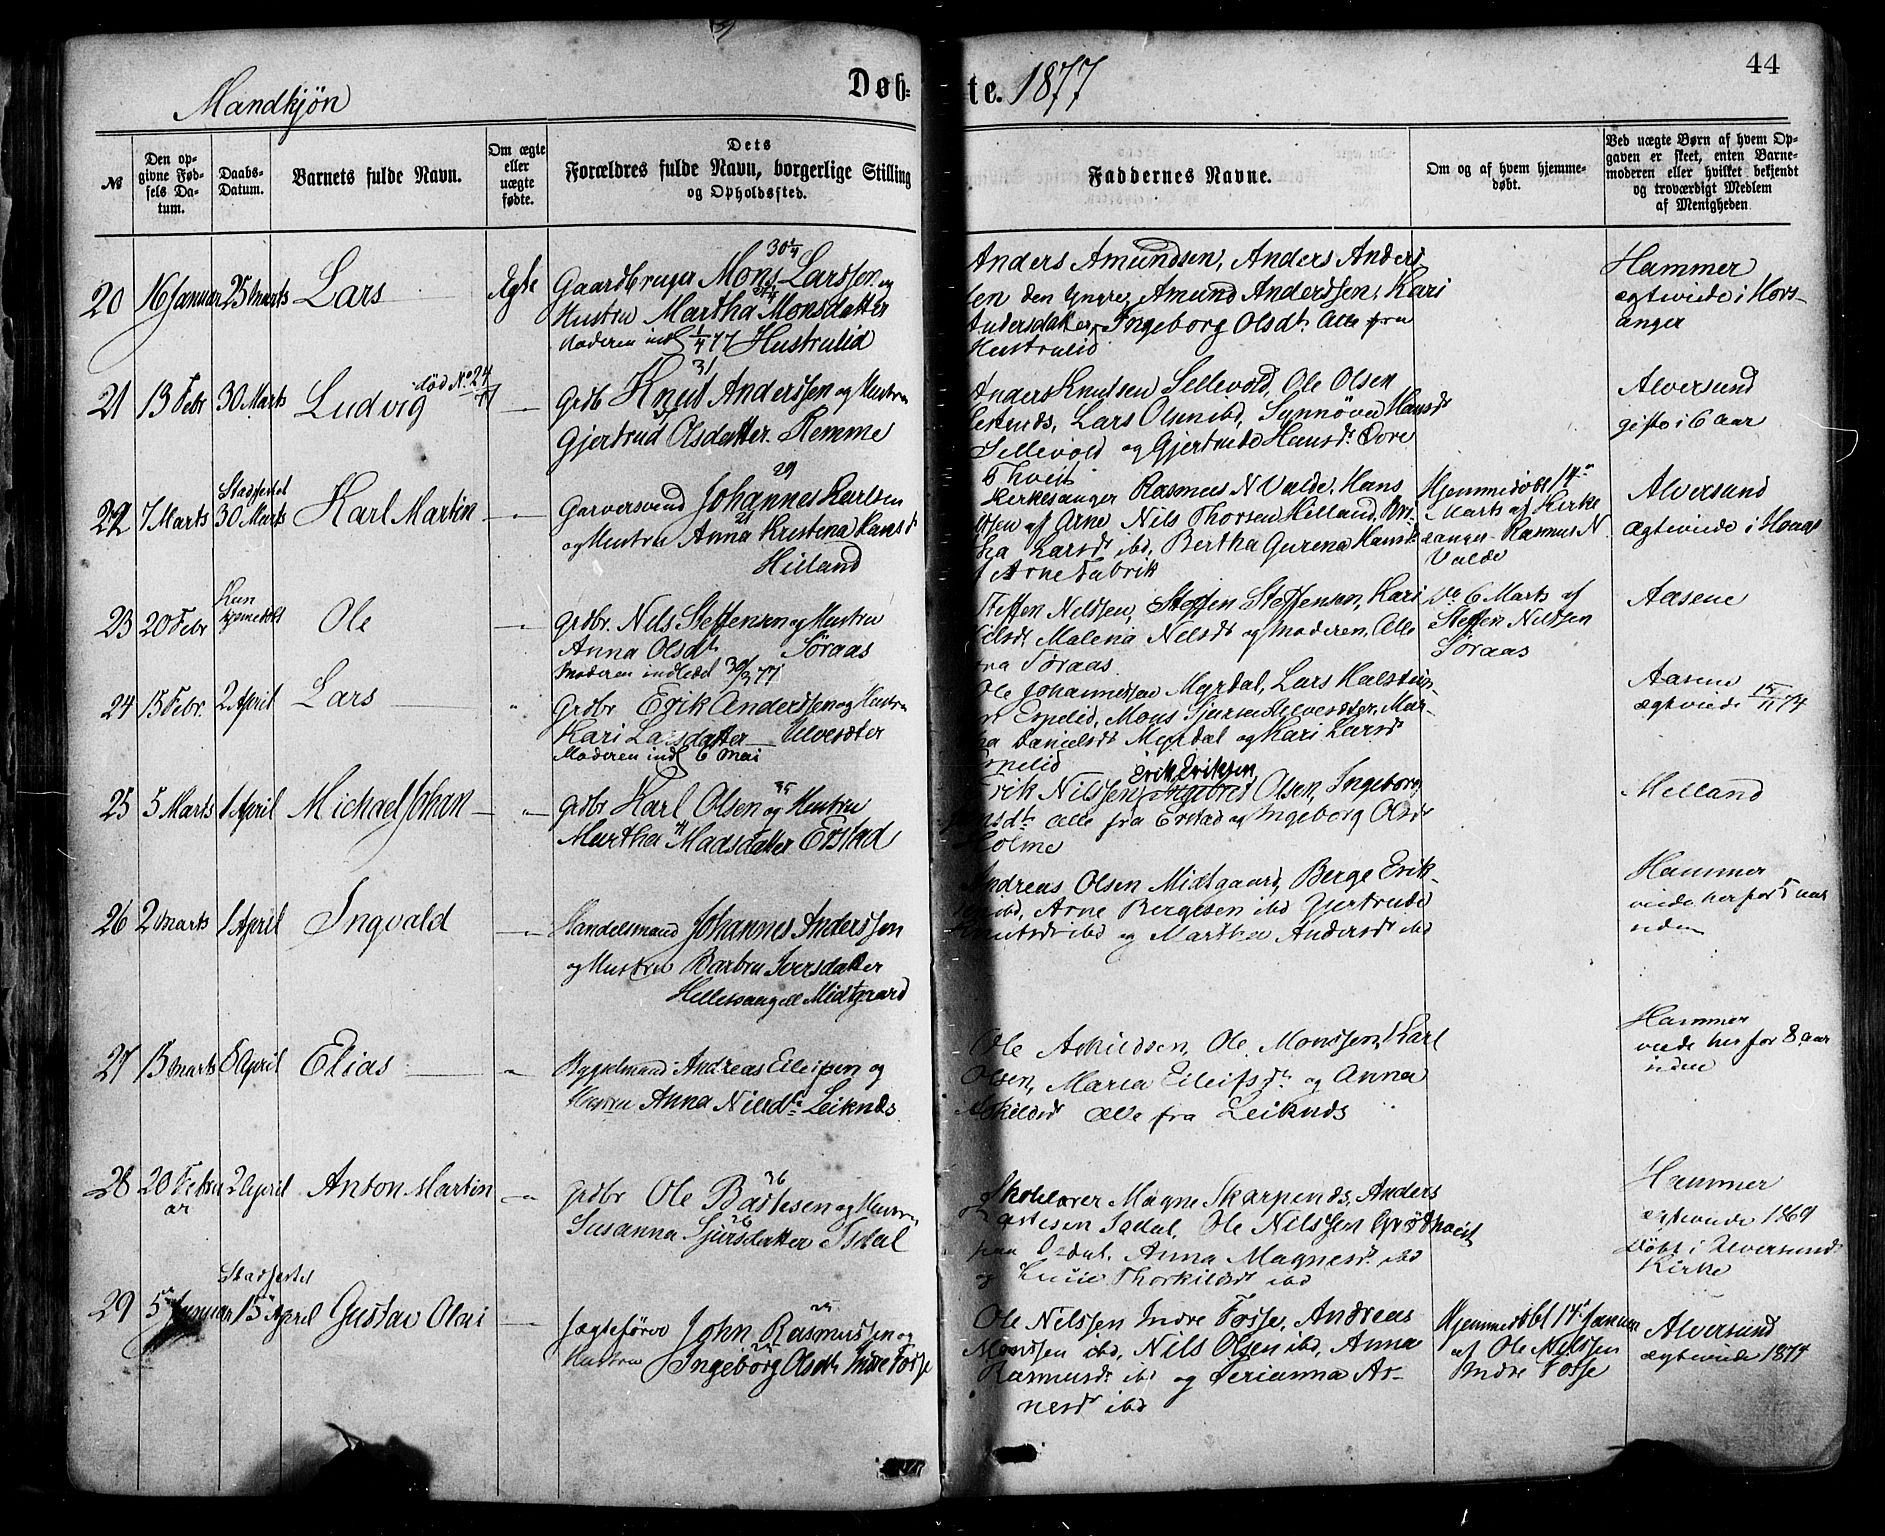 44
Mandkjön
Døb-
te. 1877
No
Den op-
givne Fød-
sels Da-
tum.
Daabs-
Datum.
Barnets fulde Navn.
Om ægte
eller
uægte
fødte.
Dets
Forældres fulde Navn, borgerlige Stilling
og Opholdssted.
Faddernes Navne.
Om og af hvem hjemme-
døbt.
Ved uægte Børn af hvem Op-
gaven er skeet, enten Barne-
moderen eller hvilket bekjendt
og troværdigt Medlem
af Menigheden
20 16 Januar 25 Marts Lars Ægte
Gaardbruger Mons Larssen og
Hustru Martha Monsdatter
Moderen indl 1/4 77 Hustrulid
Anders Amundsen, Anders Anders
sen den Yngre, Amund Anderssen, Kari
Andersdatter, Ingeborg Olsdt. Alle fra
Hustrulid
Hammer
ægteviede i Hors-
anger
21 13 Febr 30 Marts Ludvig død No 24
Grdb Knut Anderssen og Hustru
Gjertrud Olsdatter Remme
31
Anders Knutsen Sellevold, Ole Olsen
Lars Olsen ibd, Synnöve Hansdt
Sellevold og Gjertrude Hansdt. Övre
Thveit
Alversund
gifte i 6 aar
22 7 Marts Stadfestet
30 Marts Karl Martin
29
Garversvend Johannes Karlsen
og Hustru Anna Kristina Hansdt
Hilland
Kirkesanger Rasmus N Valde, Hans
af Arne Nils Thorsen Hilland, Bri-
tha Larsdt ibd, Bertha Gurena Hansdt
Arne Fabrik
Hjemmedöbt 14de
Marts af Kirke
sanger Rasmus N
Valde
Alversund
ægteviede i Haug
23 20 Febr Kun
hjemedöbt Ole
Grdbr. Nils Steffensen og Hustru
Anna Olsdt. Söraas
Moderen indledet 30/3 77
Steffen Nilssen, Steffen Steffensen, Kari
Nilsdt, Malena Nilsdt og Moderen, Alle
fra Söraas
6 Marts af
Steffen Nilssen
Söraas
Aasene
24 15 Febr. 2 April Lars
Grdbr Erik Anderssen og Hustru
Kari Larsdatter Ulvesæter
Moderen indl 6 Mai
Ole Johannessen Myrdal, Lars Halstein-
sen Espelid, Mons Sjursen Ulvesæter, Mar-
tha Danielsdt Myrdal og Kari Larsdt
Espelid
Aasene
ægteviede 15/11 74
25 5 Marts 1 April Michael Johan
Grdbr Karl Olsen og Hustru
Martha Madsdatter Erstad
Erik Eriksen,
Erik Nilssen, Olsen, Ingeborg
alle fra Erstad og Ingeborg Olsdt
Holme
Melland
26 2 Marts 1 April Ingvald
Handelsmand Johannes Anderssen
og Hustru Barbru Iversdatter
Hellesvangen Midtgaard
Andreas Olsen Midtgaard, Berge Erik-
sen ibd, Arne Bergesen ibd Gjertrude
Knutsdt ibd og Martha Andersdt ibd
Hammer
viede her for 5 aar
siden
27 13 Marts 8 April Elias
Andreas Eileifsen og
Hustru Anna Nilsdt. Leiknes.
Ole Askildsen, Ole Monssen, Karl
Olsen, Maria Eileifsdt. og Anna
Askildsdt Alle fra Leiknes
Hammer
viede her for 8 aar
siden
28 20 Febru
ar 2 April Anton Martin
36
Grdbr Ole Bastesen og Hustru
Susanna Sjursdatter Isdal
Skolelærer Magne Skarpenes, Anders
Bastesen Isdal, Ole Nilssen Grötthveit
paa Isdal, Anna Magnesdt. ibd
og Lucie Thorkildsdt ibd
Hammer
ægteviede 1869
Döbt i Alversund
Kirke
29 5 Januar Stadfestet
15 April Gustav Olai
Jægtefører John Rasmussen og
Hustru Ingeborg Olsdt. Indre Fosse
Ole Nilssen Indre Fosse, Andreas
Monssen ibd, Nils Olsen ibd, Anna
Rasmusdt ibd og Serianna Ar-
nesdt ibd
Hjemmedöbt 14 Januar
af Ole Nilssen
Indre Fosse
Alversund
ægteviede 1874